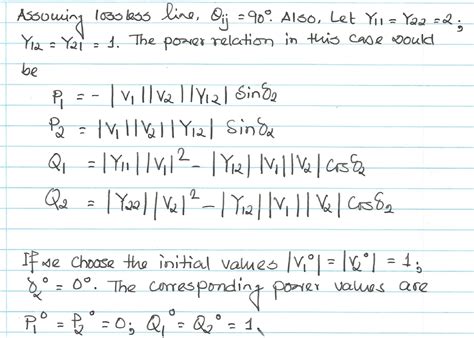 Assuming lossless line, θij = 90°. Also, Let Y11 = Y22 = 2;
Y12 = Y21 = 1. The power relation in this case would
be
P1 = - |V1||V2||Y12| Sinδ2
P2 = |V1||V2||Y12| Sinδ2
Q1 = |Y11||V1|² - |Y12||V1||V2| Cosδ2
Q2 = |Y22||V2|² - |Y12||V1||V2| Cosδ2
If we choose the initial values |V1°| = |V2°| = 1;
δ2° = 0°. The corresponding power values are
P1° = P2° = 0; Q1° = Q2° = 1.